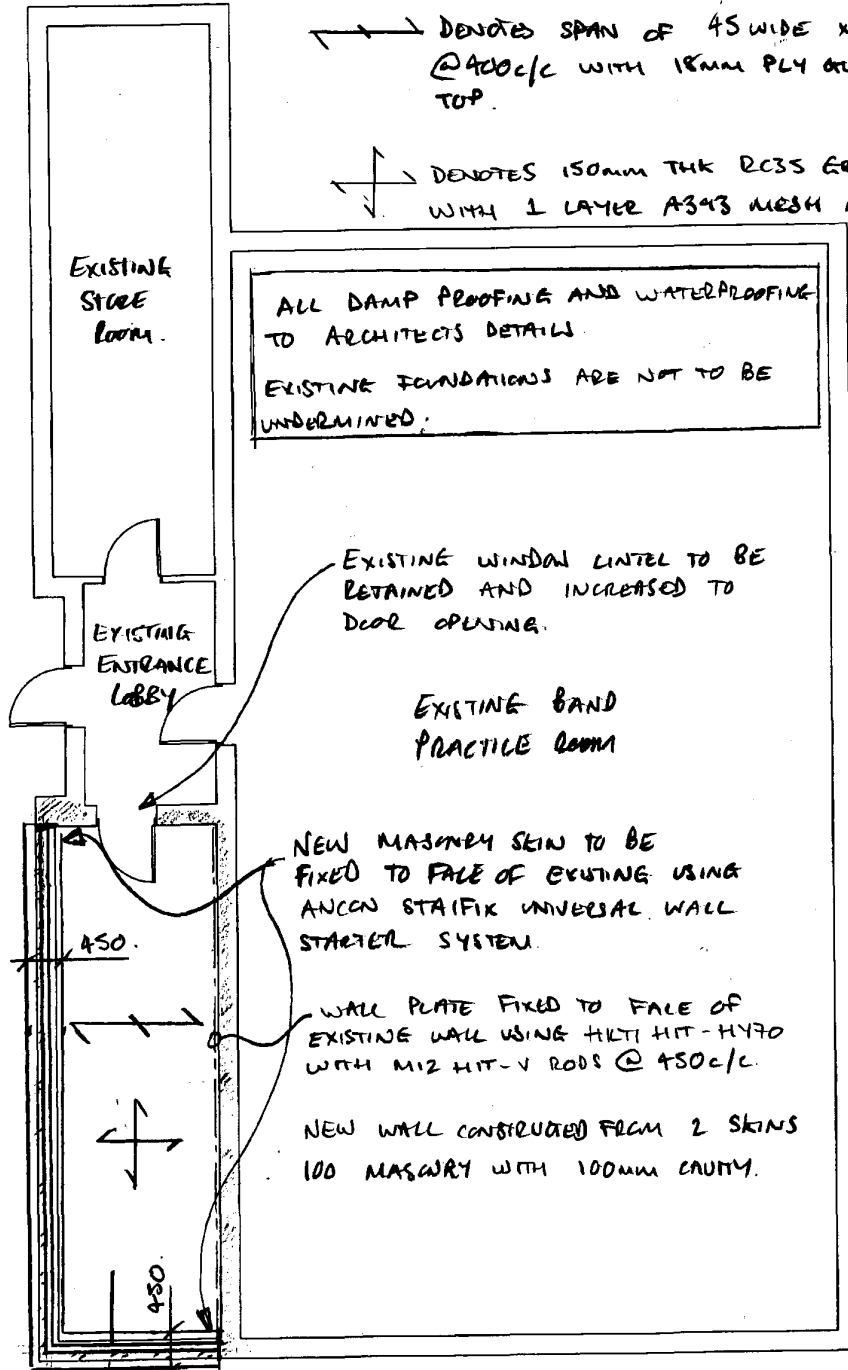 DENOTES SPAN OF 45 WIDE
@400c/c WITH 18MM PLY
TOP.
DENOTES 150mm THK RC35
WITH 1 LAYER A393 MESH
EXISTING
STORE
ROOM.
ALL DAMP PROOFING AND WATERPROOFING
TO ARCHITECTS DETAILS
EXISTING FOUNDATIONS ARE NOT TO BE
UNDERMINED.
EXISTING WINDOW LINTEL TO BE
RETAINED AND INCREASED TO
DOOR OPENING.
EXISTING
ENTRANCE
LOBBY
EXISTING BAND
PRACTICE ROOM
NEW MASONRY SKIN TO BE
FIXED TO FACE OF EXISTING USING
ANCON STAIFIX UNIVERSAL WALL
STARTER SYSTEM.
450.
WALL PLATE FIXED TO FACE OF
EXISTING WALL USING HILTI HIT-HY70
WITH M12 HIT-V RODS @ 450c/c.
NEW WALL CONSTRUCTED FROM 2 SKINS
100 MASONRY WITH 100mm CAVITY.
450.